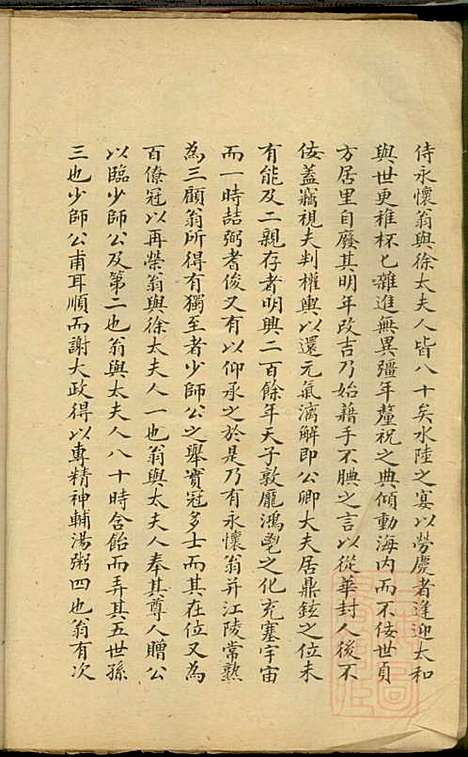 侍永懷翁與徐太夫人皆八十矣水陸之宴以勞慶者逢迎太和
與世更稚杯匕雜進無異彊年釐祝之典傾動海内而不佞世貞
方居里自廢其明年改吉乃始藉手不腆之言以從華封人後不
佞蓋竊視夫判權輿以還元氣漓解即公卿大夫居鼎鉉之位未
有能及二親存者明興二百餘年天子敦龐鴻鬯之化充塞宇宙
而一時喆弼者俊又有以仰承之於是乃有永懷翁并江陵常熟
為三顧翁所得有獨至者少師公之舉實冠多士而其在位又為
百僚冠以再榮翁與徐太夫人一也翁與太夫人奉其尊人贈公
以臨少師公及第二也翁與太夫人八十時含飴而弄其五世孫
三也少師公甫耳順而謝大政得以專精神輔湯粥四也翁有次